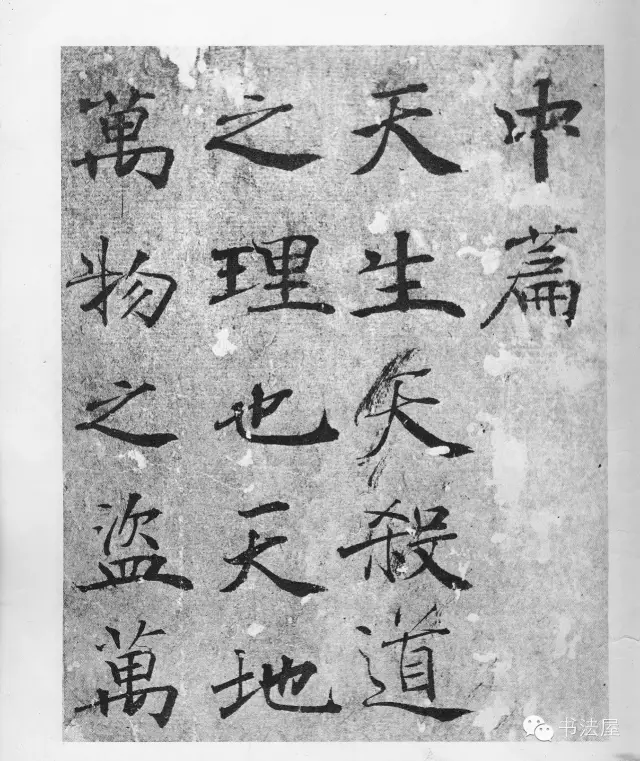 中篇
天生天殺道
之理也天地
萬物之盜萬
书法屋